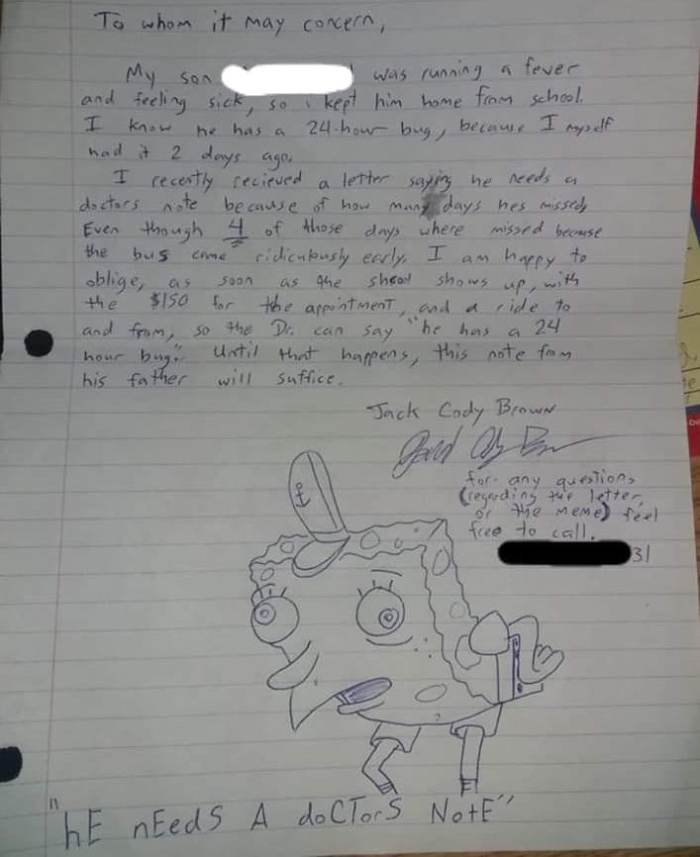 To whom it may concern,
My son was running a fever
and feeling sick, so i kept him home from school.
I know he has a 24-hour bug, because I myself
had it 2 days ago.
I recently recieved a letter saying he needs a
doctors note because of how many days hes missed,
Even though 4 of those days where missed because
the bus came ridiculously early. I am happy to
oblige, as soon as the school shows up, with
the $150 for the appointment, and a ride to
and from, so the Dr. can say "he has a 24
hour bug." Until that happens, this note from
his father will suffice.
Jack Cody Brown
for any questions
(regarding the letter,
or the meme) feel
free to call.
31
"hE nEedS A doCTorS NotE"